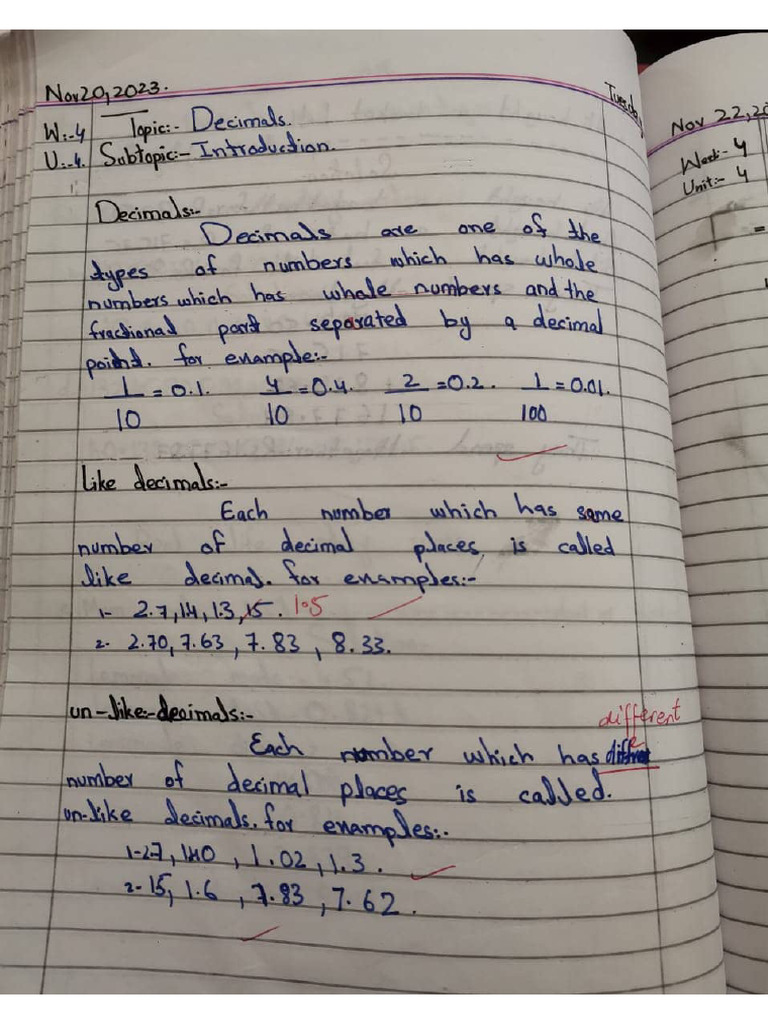 Nov 20, 2023. Tuesday
W:-4 Topic:- Decimals.
U:-4. Subtopic:- Introduction.
Decimals:-
Decimals are one of the
types of numbers which has whole
numbers which has whole numbers and the
fractional part separated by a decimal
point. for example:-
1/10 = 0.1. 4/10 = 0.4. 2/10 = 0.2. 1/100 = 0.01.
like decimals:-
Each number which has same
number of decimal places is called
like decimal. for examples:-
1- 2.7, 1.4, 1.3, 15. 1.5
2- 2.70, 7.63, 7.83, 8.33.
un-like-decimals:-
different
Each number which has
number of decimal places is called.
un-like decimals. for examples:-
1- 2.7, 1.40, 1.02, 1.3.
2- 15, 1.6, 7.83, 7.62.
Nov 22, 20
Week:- 4
Unit:- 4